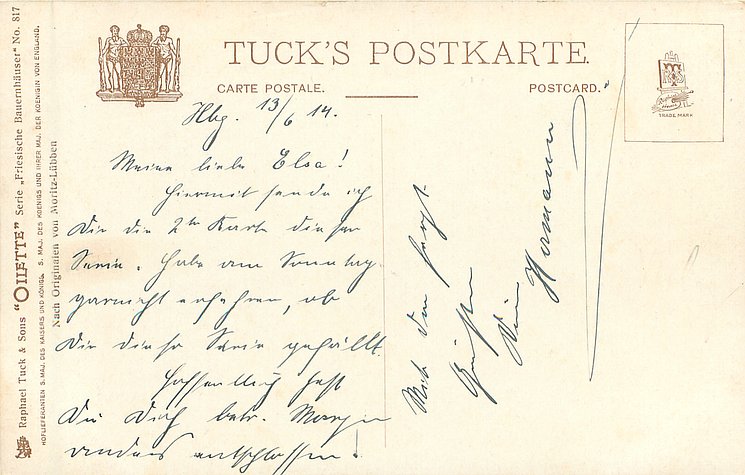 TUCK'S POSTKARTE.
CARTE POSTALE.
POSTCARD.
TRADE MARK
Raphael Tuck & Sons "OILETTE" Serie „Friesische Bauernhäuser" No. 817
HOFLIEFERANTEN S. MAJ. DES KAISERS UND KÖNIGS. S. MAJ. DES KOENIGS UND IHRER MAJ. DER KOENIGIN VON ENGLAND.
Nach Originalen von Moritz-Lübben
Hbg. 13/6 14.
Meine liebe Elsa!
Hiermit sende ich
Dir die 2te Karte dieser
Serie. Habe am Sonntag
garnicht erfahren, ob
Dir diese Serie gefällt.
Hoffentlich hast
Du Dich betr. Morgen
anders entschlossen!
Mit den
Grüßen
Dein
Hermann